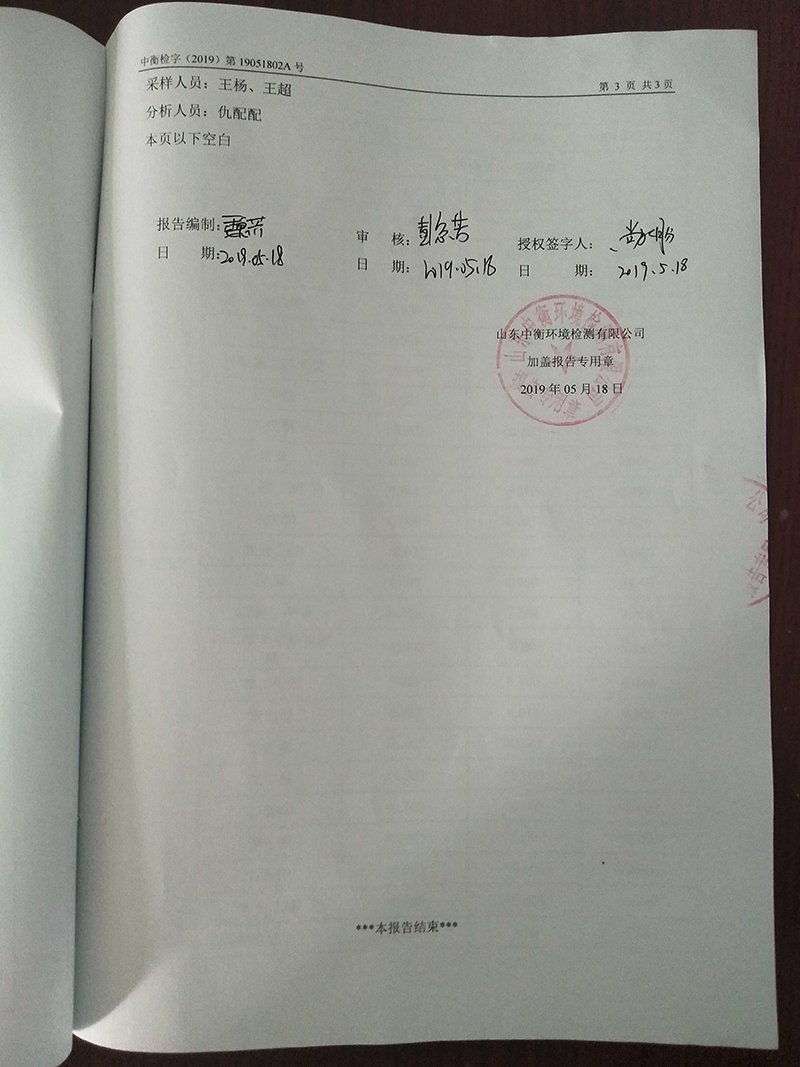 中衡检字（2019）第 19051802A 号
第 3 页 共3页
采样人员：王杨、王超
分析人员：仇配配
本页以下空白
报告编制：
审 核：
授权签字人：
日 期：2019.05.18
日 期：2019.05.18
日 期：2019.5.18
山东中衡环境检测有限公司
加盖报告专用章
2019 年 05 月 18 日
***本报告结束***